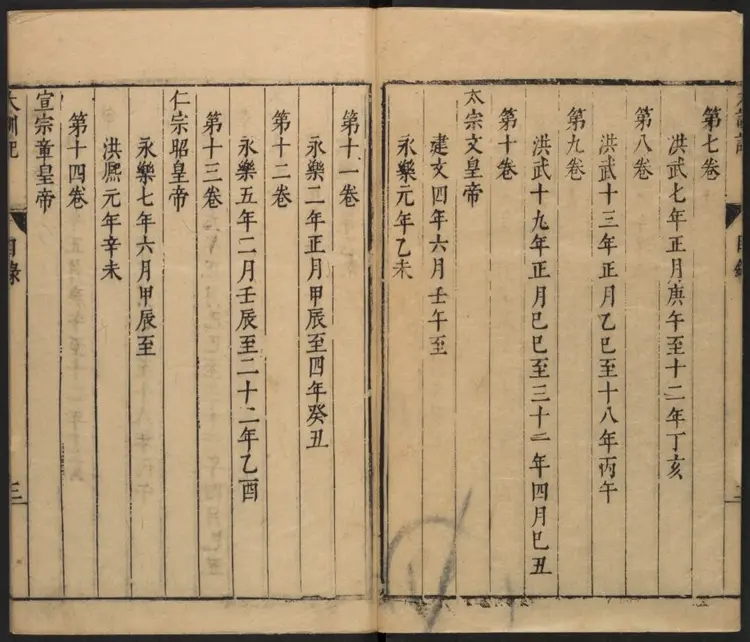 第七卷
洪武七年正月庚午至十二年丁亥
第八卷
洪武十三年正月乙巳至十八年丙午
第九卷
洪武十九年正月巳巳至三十二年四月巳丑
太宗文皇帝
第十卷
建文四年六月壬午至
永樂元年乙未
第十一卷
永樂二年正月甲辰至四年癸丑
第十二卷
永樂五年二月壬辰至二十二年乙酉
第十三卷
仁宗昭皇帝
永樂七年六月甲辰至
洪熈元年辛未
第十四卷
宣宗章皇帝
大訓記
目錄
三